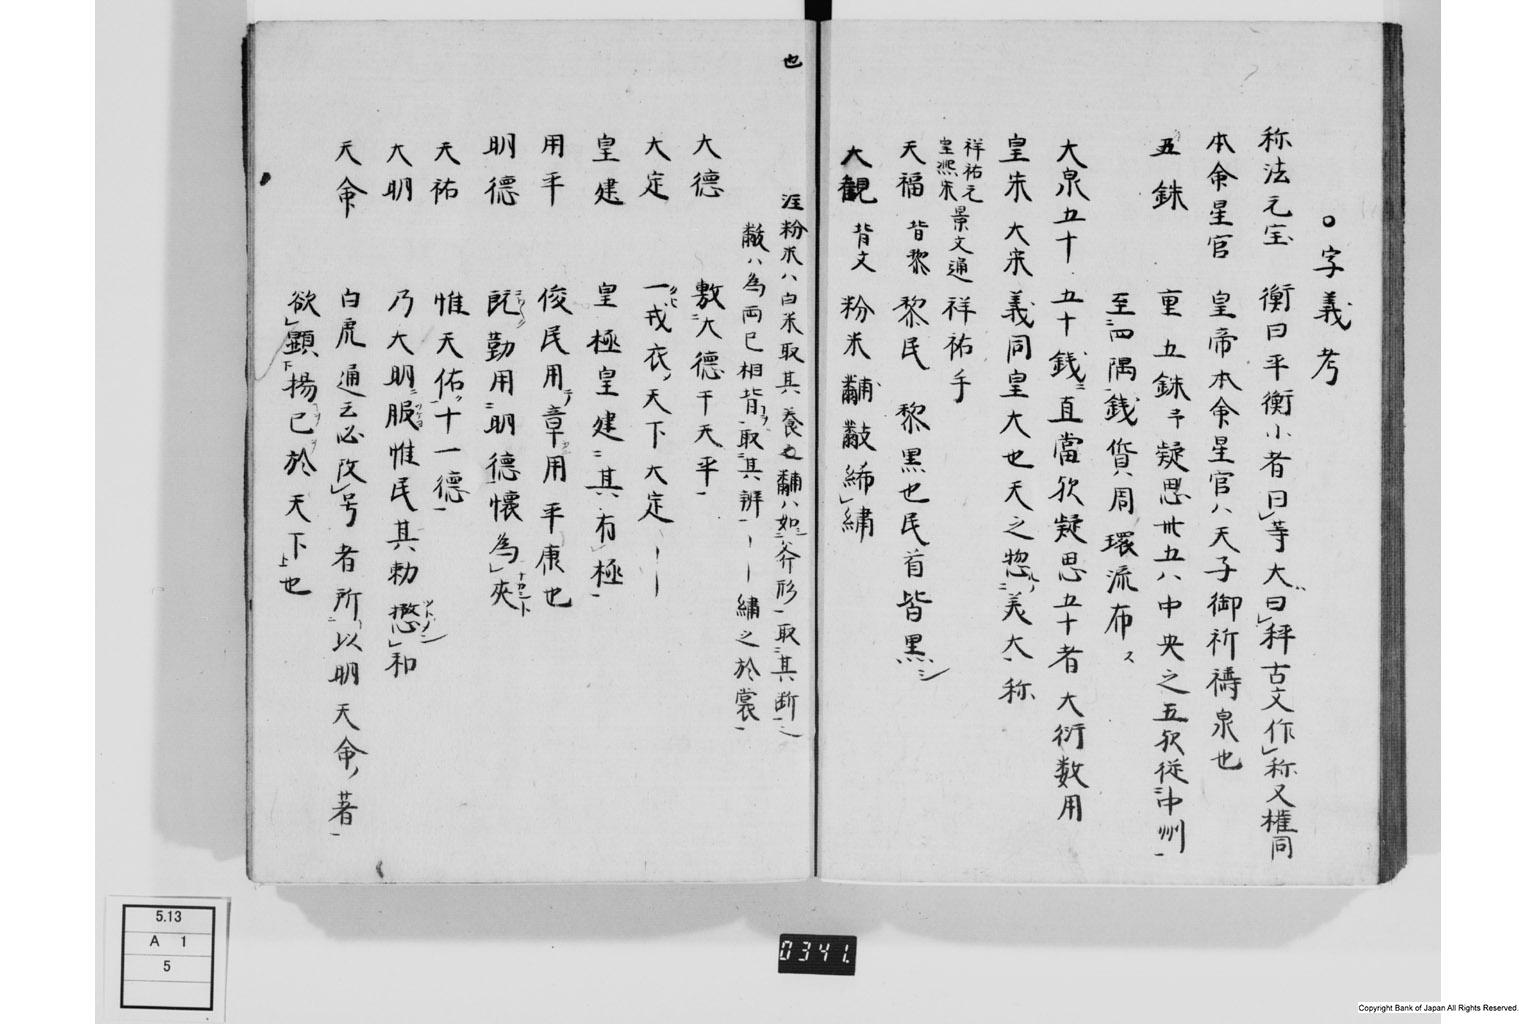 ○字義考
称法元宝 衡曰平衡小者曰等大曰秤古文作称又権同
本命星官 皇帝本命星官ハ天子御祈祷泉也
五銖 重五銖予疑思卅五ハ中央之五欤従中州
至四隅銭貨周環流布ス
大泉五十 五十銭直當欤疑思五十者大衍数用
皇宋 大宋 義同皇大也天之惣美大称
祥祐元 景文通 祥祐手
皇熙宋
天福 背黎 黎民 黎黒也民首皆黒シ
大観 背文 粉米黼黻絺繍
注粉米ハ白米取其養也黼ハ如斧形取其断之
也
黻ハ為両已相背取其辨一ーー繍之於裳
大德 敷大德于天平
大定 一戎衣天下大定
皇建 皇極皇建其有極
用平 俊民用章用平康也
明德 既勤用明德懐為夾
天祐 惟天佑十一德
大明 乃大明服惟民其勅懋和
天命 白虎通云必改号者所以明天命著
欲顕揚已於天下也
5.13
A 1
5
0341.
Copyright Bank of Japan All Rights Reserved.